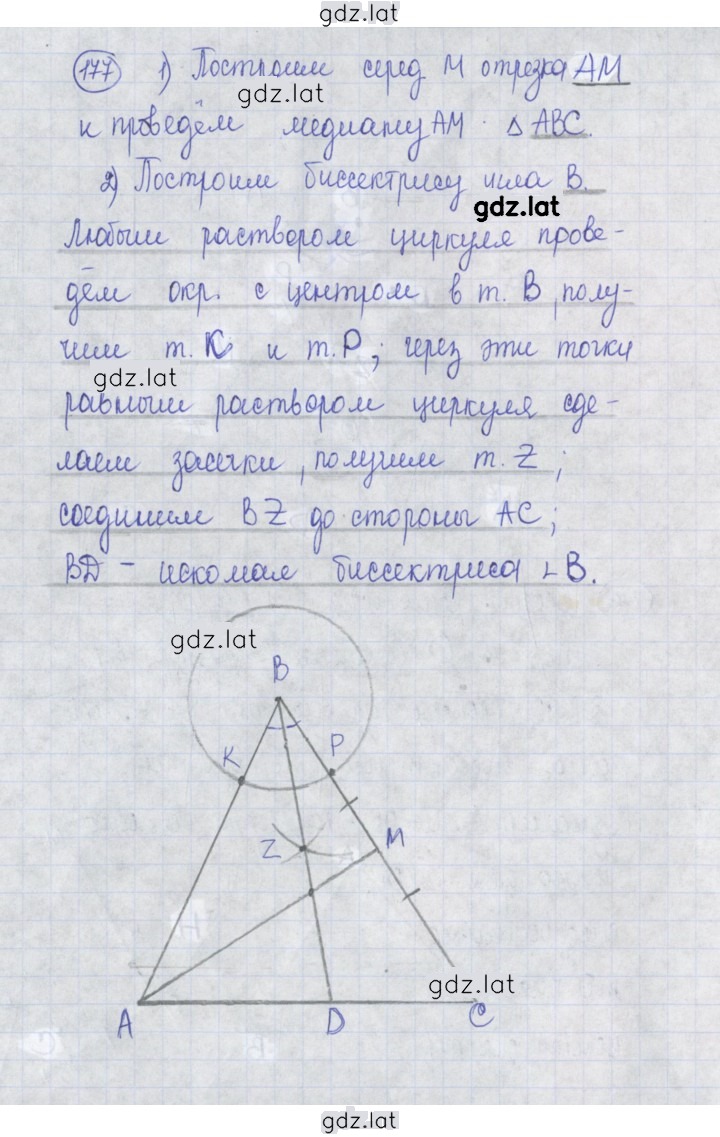 gdz.lat
177 1) Построим серед M отрезка AM
gdz.lat
и проведём медиану AM · △ ABC.
2) Построим биссектрису угла B.
gdz.lat
Любым раствором циркуля прове-
дём окр. с центром в т. B, полу-
чим т. K и т. P; через эти точки
gdz.lat
равным раствором циркуля сде-
лаем засечки, получим т. Z;
соединим BZ до стороны AC;
BD – искомая биссектриса ∠B.
gdz.lat
B
K P
Z M
gdz.lat
A D C
gdz.lat